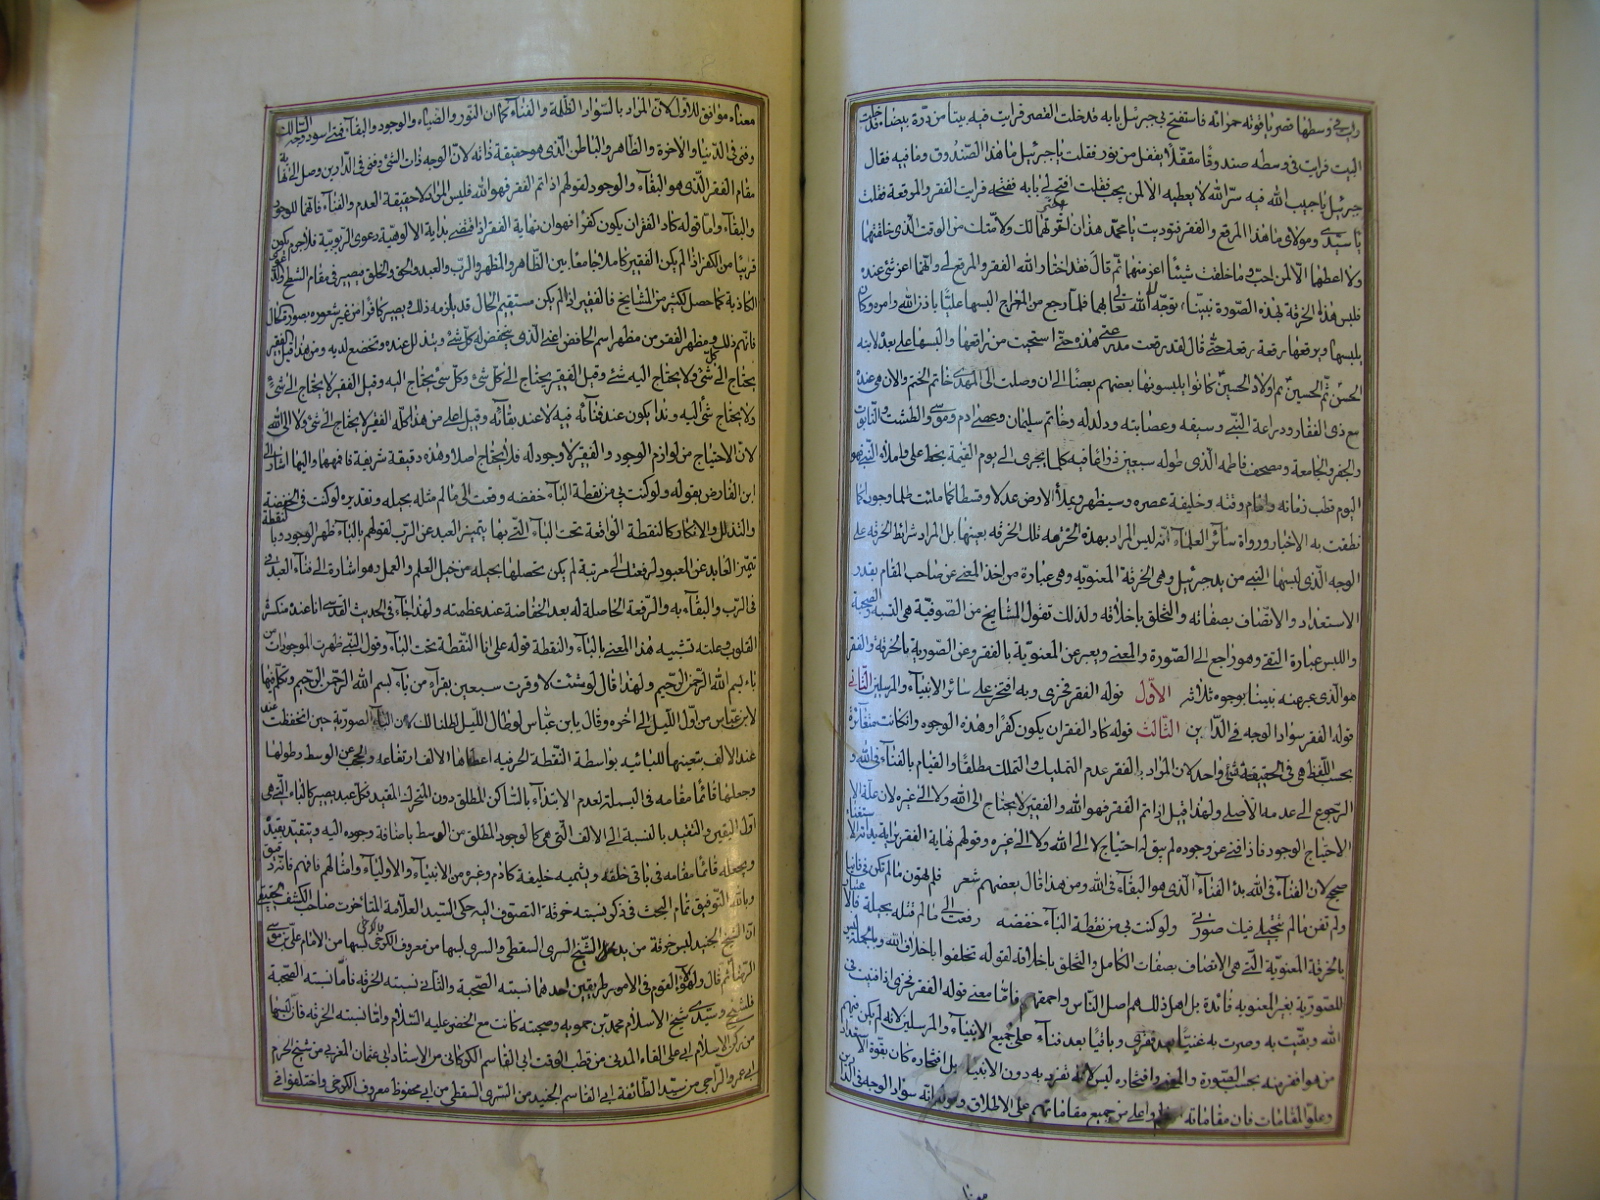 رايت في وسطها قصرا ياقوته حمرائه فاستفتح لي جبرئيل بابه فدخلت القصر فرايت فيه بيتا من درّة بيضاء فدخلت
البيت فرايت في وسطه صندوقا مقفّلا بقفل من نور فقلت يا جبرئيل ما هذا الصّندوق وما فيه فقال
جبرئيل يا حبيب الله فيه سرّ الله لا يعطيه الا لمن يحب فقلت افتح لي بابه ففتحه فرايت الفقر والموقعة فقلت
يا سيّدي ومولاي ما هذا المرقع والفقر فنوديت يا محمّد هذان اخترتهما لك ولامّتك من الوقت الّذي خلقتهما
ولا اعطيهما الّا لمن احبّ وما خلقت شيئا اعز منهما ثم قال فقد اختار الله الفقر والمرقع لي وانّهما اعز شئ عنده
فلبس هذه الخرقة بهذه الصّورة نبيّنا بتوجّه الله تعالى بها فلما رجع من المعراج البسها عليّا باذن الله وامره وكان
يلبسها ويرقعها رقعة رقعة حتّى قال لقد رقعت مدرعتي هذه حتّى استحيت من راقعها والبسها علي بعده لابنه
الحسن ثمّ الحسين ثم اولاد الحسين كانوا يلبسونها بعضهم بعضا الى ان وصلت الى المهدي خاتم الختم والان هي عنده
مع ذي الفقار ودراعة النّبي وسيفه وعصابته ودلدله وخاتم سليمان وعصى ادم وموسى والطشت والتّابوت
والجفر والجامعة ومصحف فاطمه الّذي طوله سبعين ذراعا فيه كلما يجري الى يوم القيمة بخط علي واملاء النّبي فهو
اليوم قطب زمانه وامام وقته وخليفة عصره وسيظهر ويملأ الارض عدلا وقسطا كما ملئت ظلما وجورا كما
نطقت به الاخبار ورواة سائر العلماء انّه ليس المراد بهذه الخرقه تلك الخرقه بعينها بل المراد شرائط الخرقه على
الوجه الّذي لبسها النّبي من يد جبرئيل وهي الخرقة المعنويّه وهي عبارة من اخذ المعنى عن صاحب المقام بقدر
الاستعداد والاتّصاف بصفاته والتّخلق باخلاقه ولذلك تقول المشايخ من الصّوفيّة هي النّسبة والصحبة
واللبس عبارة التقى وهو راجع الى الصّورة والمعنى ويعبر عن المعنويّة بالفقر وعن الصّورية بالخرقة والفقر
هو الّذي عبر عنه نبيّنا بوجوه ثلاثه الاوّل قوله الفقر فخري وبه افتخر على سائر الانبيآء والمرسلين الثّاني
قوله الفقر سواد الوجه في الدّارين الثّالث قوله كاد الفقر ان يكون كفرا وهذه الوجوه وان كانت متغايرة
بحسب اللّفظ هي في الحقيقة شئ واحد لان المراد بالفقر عدم التمليك والتملك مطلقا والقيام بالفناء في الله و
الرّجوع الى عدمه الاصلي ولهذا قيل اذا تم الفقر فهو الله والفقير لا يحتاج الى الله ولا الى غيره لان علّة الاستغناء
الاحتياج الوجود فاذا فني عن وجوده لم يبق له احتياج لا الى الله ولا الى غيره وقولهم نهاية الفقر بداية
صحيح لان الفناء في الله بدء الفنآء الّذي هو البقآء في الله ومن هذا قال بعضهم شعر فلم تهوني ما لم تكن في فانيا
ولم تفن ما لم تجتلي فيك صورتي ولو كنت بي من نقطة الباء خفضه رفعت الى ما لم تنله بحيلة فالاعتبار
بالخرقة المعنويّة الّتي هي الاتّصاف بصفات الكامل والتّخلق باخلاقه لقوله تخلقوا باخلاق الله وبالجملة ليس
للصّوريّة بغير المعنويه فائدة بل اهل ذلك هم اضل النّاس واحمقهم فامّا معنى قوله الفقر فخري اذا فنيت في
الله وبقيت به وصرت به غنيّا بعد فقري وباقيا بعد فناء على جميع الانبيآء والمرسلين لانه لم يكن فيهم
من هو افقر منه بحسب الصّورة والمعنى وافتخاره ليس لانّه تفرد به دون الانبيا بل افتخاره كان بقوة الاستعداد
وعلوّ المقامات فان مقاماته اعلى من جميع مقاماتهم على الاطلاق وقوله انّه سواد الوجه في الدّارين
معناه
معناه موافق للاول لانّ المراد بالسّواد الظّلمة والفنآء كما ان النّور والضياء والوجود والبقآء فمتى اسود وجه السّالك
وفنى في الدّنيا والاخرة والظّاهر والباطن الّذي هو حقيقة ذاته لانّ الوجه ذات الشّئ وفنى في الدّارين وصل الى نهاية
مقام الفقر الّذي هو البقآء والوجود لقولهم اذا تم الفقر فهو الله فليس المراد لا حقيقة العدم والفناء فانّهما للوجود
والبقآء وامّا قوله كاد الفقر ان يكون كفرا فهو ان نهاية الفقر اذا اقتضى بداية الالوهية دعوى الرّبوبيّة فلا جرم يكون
قريبا من الكفر اذا لم يكن الفقير كاملا جامعا بين الظّاهر والمظهر والرّب والعبد والحق والخلق فيصير في مقام الشّطح والدعوى
الكاذبة كما حصل لكثير من المشايخ فالفقير اذا لم يكن مستقيم الحال قد يلزمه ذلك ويصير كافرا من غير شعوره بصورة الحال
فافهم ذلك ومظهر الفقر من مظهر اسم الحافض اعني الّذي ينخفض له كلّ شئ ويتذلل عنده وتخضع لديه ومن هذا قيل الفقير
يحتاج الى كل شئ ولا يحتاج اليه شئ وقيل الفقير يحتاج الى كلّ شئ وكل شئ يحتاج اليه وقيل الفقير لا يحتاج الى شئ
ولا يحتاج شئ اليه وذا يكون عند فنائه فيه لا عند بقائه وقيل اعلى من هذا كلّه الفقير لا يحتاج الى شئ ولا الى الله
لانّ الاحتياج من لوازم الوجود والفقير لا وجود له فلا يحتاج اصلا وهذه دقيقة شريفة فافهمها واليها اشار
ابن الفارض بقوله ولو كنت بي من نقطة البآء خفضه رفعت الى ما لم تنله بحيله وتقديره لو كنت في الخفضة
والتذلل والانكار كالنقطة الواقعة تحت البآء الّتي بها يتميّز العبد عن الرب لقولهم بالبآء ظهر الوجود وبالنقطة
تميّز العابد عن المعبود لرفعتك الى مرتبة لم يكن تحصلها بحيله من حيل العلم والعمل وهو اشارة الى فناء العبد
في الرّب والبقآء به والرّفعة الحاصلة له بعد الخفاضة عند عظمته ولهذا جآء في الحديث القدسي انا عند منكسرة
القلوب وعلته تشبيه هذا المعنى بالبآء والنقطة قوله علي انا النّقطة تحت البآء وقول النّبي ظهرت الموجودات من
باء بسم الله الرّحمن الرّحيم ولهذا قال لو شئت لاوقرت سبعين بقرآء من بآء بسم الله الرّحمن الرّحيم وتكلّم فيها
لابن عبّاس من اوّل اللّيل الى اخره وقال يابن عبّاس لو طال اللّيل لطلنا لك لان البآء الصوريّة حين انخفضت
عند الالف بتعينها للبائيه بواسطة النّقطة الحرفيه اعطاها الالف ارتفاعه والجرّ عن الوسط وطولها
وجعلها قائما مقامه في البسملة لعدم الابتدآء بالسّاكن المطلق دون المتحرك المقيد فكل عبد يصير كالباء الّتي هي
اوّل اليقين والتّقيد بالنّسبة الى الالف الّتي هي كالوجود المطلق من الوسط باضافة وجوده اليه ويتقيد بقيد
ويجعله قائما مقامه في باقي خلقه ويسميه خليفة كادم وغيره من الانبيآء والاوليآء وامثالهم فافهم فانّه دقيق
وبالله التّوفيق تمام البحث في ذكر نسبته خرقة التصوّف اليه حكى السّيد العلّامة المتاخرت صاحب الكشف الحقيقي
انّ الشّيخ الجنيد لبس خرقة من يد الشّيخ السري السقطي والسري لبسها من معروف الكرخي والكرخي لبسها من الامام علي بن موسى
الرّضا ثم قال ولهؤلاء القوم في الامور طريقين احدهما نسبته الصّحبة والثّاني نسبته الخرقه فامّا نسبته الصّحبة
فلشيخ وسيّدي شيخ الاسلام محمّد بن حمويه وصحبته كانت مع الخضر عليه السّلام وامّا نسبته الخرقه فانّ لبسها
من ركن الاسلام ابي علي الفاء المدني من قطب الوقت ابي القاسم الكركاني من الاستاد ابي عثمان المغربي من شيخ الحرم
ابي عمرو الزّاجي من سيّد الطّائفة ابي القاسم الجنيد من السّري السّقطي من ابي محفوظ معروف الكرخي واختلفوا في